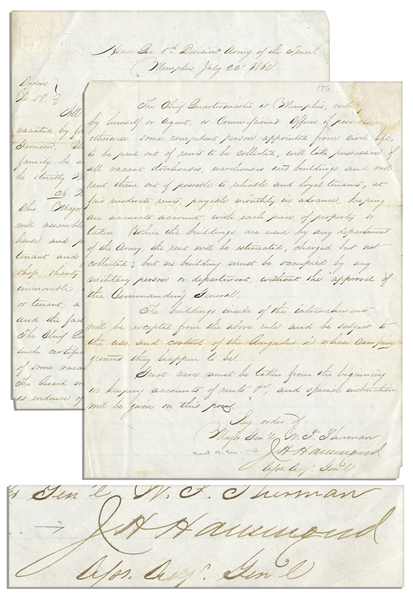 Head Qrs 5th Division Army of the Tenn.
Memphis July 22d 1862
Orders
No 58
All
vacated by
family be
be strictly
Ohio, Major
will assemble
house and
tenant and
shop, shanty
immovable
or tenant, a
and the
The Chief
such certific
of some vaca
The Board
as evidence of
126
The Chief Quartermaster at Memphis, will
by himself or Agent, a Commissioned Officer if possible
otherwise some competent person appointed from civil life,
to be paid out of rents to be collected, will take possession of
all vacant storehouses, warehouses and buildings and
rent them out if possible to reliable and loyal tenants, at
fair moderate rents, payable monthly in advance, keeping
an accurate account, with each piece of property so
taken. When the buildings are used by any department
of the Army, the rent will be estimated, charged but not
collected; but no building must be occupied by any
military person or department, without the approval of
the Commanding General.
The buildings inside of the intrenchments
will be excepted from the above rule and be subject to
the use and control of the Brigades in whose Camping
grounds they happen to be.
Great care must be taken from the beginning
in keeping accounts of rents &c, and special instructions
will be given on this point.
By order of
Major Gen'l W. T. Sherman
J H Hammond
Ass. Adj. Gen'l
Gen'l W. T. Sherman
J H Hammond
Ass. Adj. Gen'l